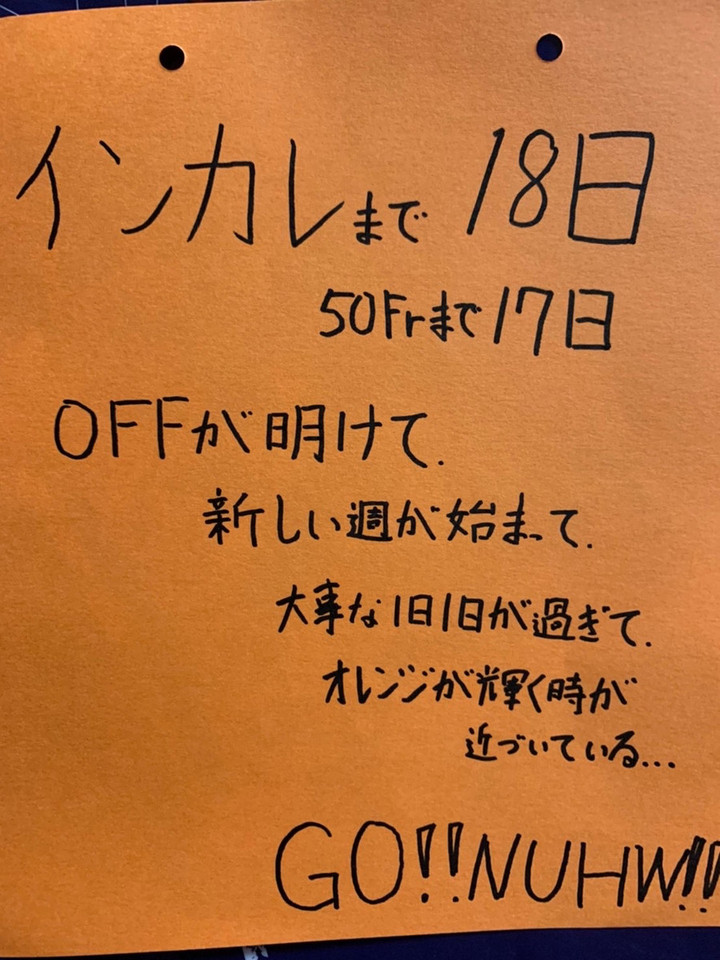 インカレまで 18日
50Frまで17日
OFFが明けて.
新しい週が始まって.
大事な1日1日が過ぎて.
オレンジが輝く時が
近づいている...
GO!!NUHW!!